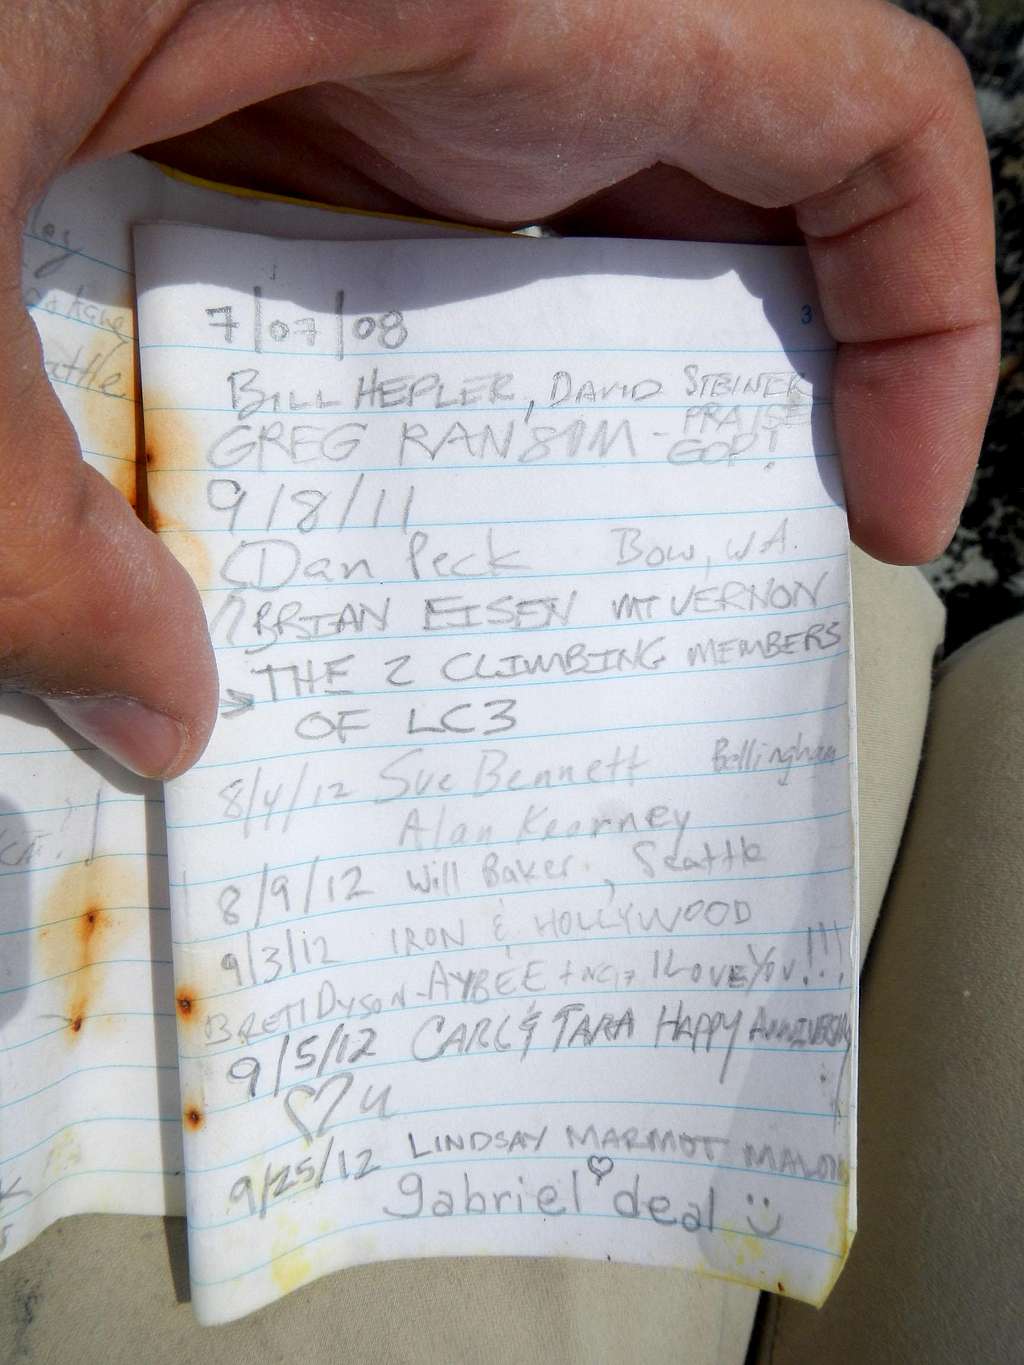 log
attle
3
7/07/08
BILL HEPLER, DAVID STEINER
GREG RANSOM - PRAISE GOD!
9/8/11
Dan Peck Bow, WA.
BRIAN EISEN MT VERNON
THE 2 CLIMBING MEMBERS
OF LC3
8/4/12 Sue Bennett Bellingham
Alan Kearney
8/9/12 Will Baker, Seattle
9/3/12 IRON & HOLLYWOOD
BRETT DYSON - AYBEE I LOVE YOU!!!
9/5/12 CARL & TARA HAPPY ANNIVERSARY
♡ U
9/25/12 LINDSAY MARMOT
gabriel ♡ deal :)